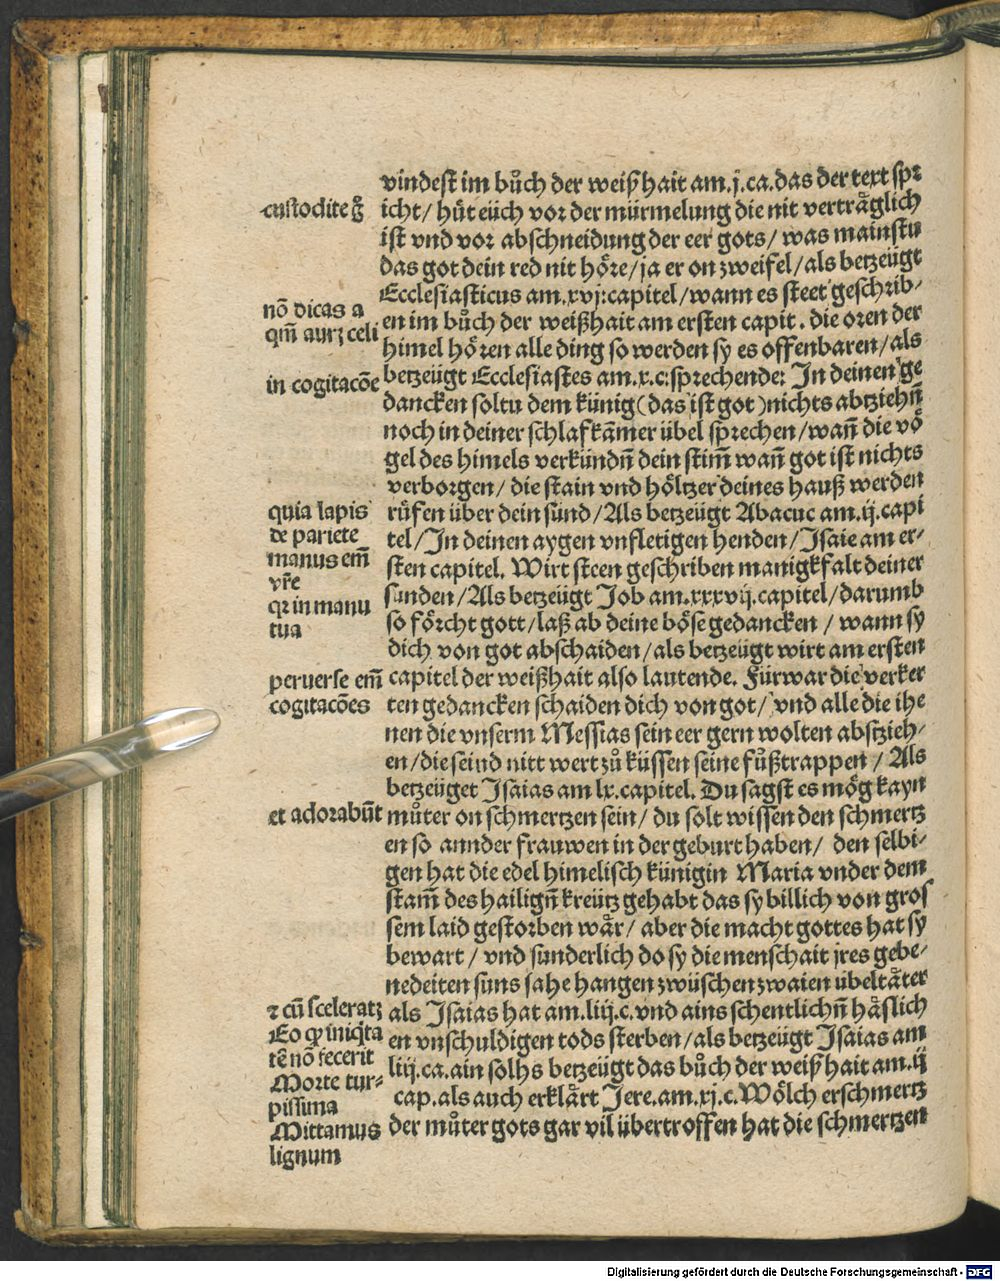 vindest im bůch der weißhait am.j.ca.das der text spr
icht/ hüt eüch vor der mürmelung die nit verträglich
ist vnd vor abschneidung der eer gots/ was mainstu
das got dein red nit höre/ja er on zweifel/als betzeügt
Ecclesiasticus am.xvj:capitel/wann es steet geschrib-
en im bůch der weißhait am ersten capit. die oren der
himel hören alle ding so werden sy es offenbaren/als
betzeügt Ecclesiastes am.x.c:sprechende: In deinen ge
dancken soltu dem künig(das ist got)nichts abtziehn̄
noch in deiner schlafkam̄er übel sprechen/wan̄ die vö
gel des himels verkündn̄ dein stim̄ wan̄ got ist nichts
verborgen/ die stain vnd höltzer deines hauß werden
růfen über dein sünd/Als betzeügt Abacuc am.ij.capi
tel/In deinen aygen vnfletigen henden/Isaie am er-
sten capitel. Wirt steen geschriben manigkfalt deiner
sünden/Als betzeügt Job am.xxxvij.capitel/darumb
so förcht gott/laß ab deine böse gedancken / wann sy
dich von got abschaiden/als betzeügt wirt am ersten
capitel der weißhait also lautende. Fürwar die verker
ten gedancken schaiden dich von got/ vnd alle die ihe
nen die vnserm Messias sein eer gern wolten abstzieh-
en/die seind nitt wert zů küssen seine fůßtrappen / Als
betzeüget Isaias am lx.capitel. Du sagst es mög kayn
můter on schmertzen sein/ du solt wissen den schmertz
en so annder frauwen in der geburt haben/ den selbi-
gen hat die edel himelisch künigin Maria vnder dem
stam̄ des hailign̄ kreütz gehabt das sy billich von gros
sem laid gestorben wär/ aber die macht gottes hat sy
bewart / vnd sunderlich do sy die menschait jres gebe-
nedeiten suns sahe hangen zwüschen zwaien übeltäter
als Isaias hat am.liij.c.vnd ains schentlichn̄ häslich
en vnschuldigen tods sterben/als betzeügt Isaias am
liij.ca.ain solhs betzeügt das bůch der weißhait am.ij
cap.als auch erklärt Jere.am.xj.c.Wölch erschmertz
der můter gots gar vil übertroffen hat die schmertzen
custodite g̊
nō dicas a
qm̄ aurꝫ celi
in cogitacōe
quia lapis
de pariete
manus em̄
vr̄e
qꝛ in manu
tua
peruerse em̄
cogitacōes
et adorabūt
⁊ cū sceleratꝫ
Eo ꝙ iniq̇ta
tē nō fecerit
Morte tur-
pissima
Mittamus
lignum
Digitalisierung gefördert durch die Deutsche Forschungsgemeinschaft - DFG